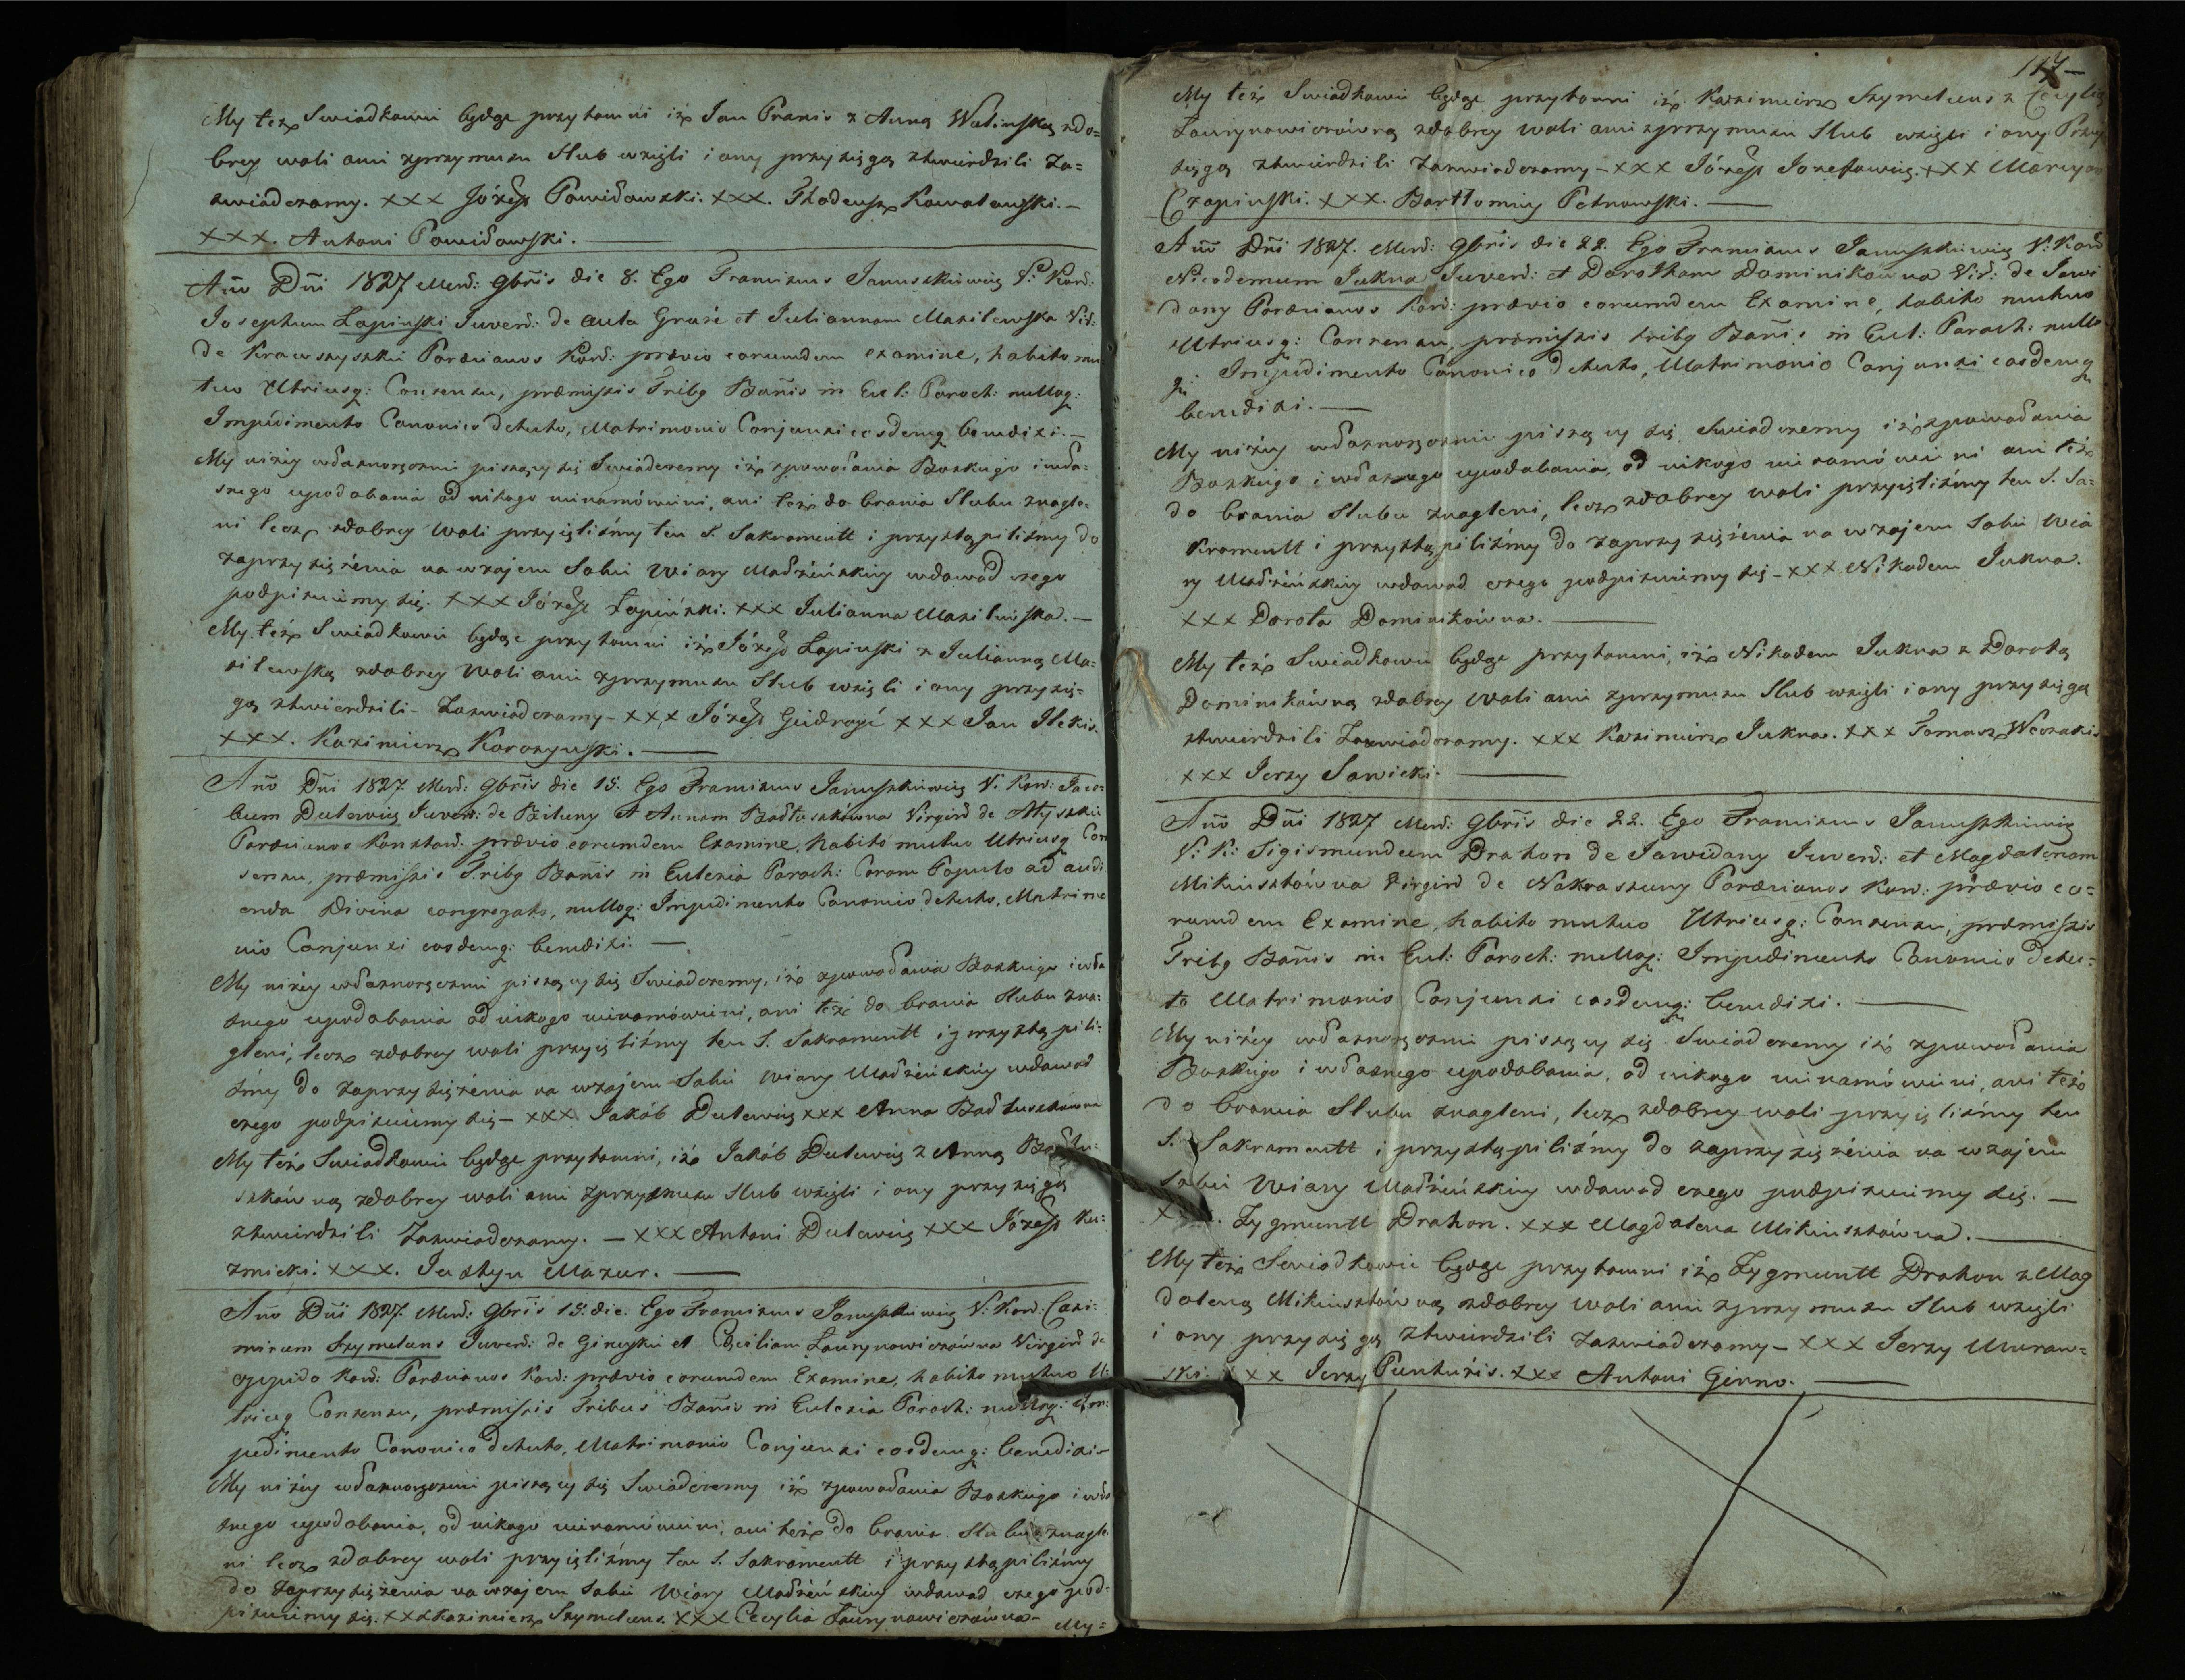 My też Swiadkowie będąc przytomni iż Jan Pranis z Anną Walinską zdo=
brey woli ani zprzymusu Slub wzięli i ony przysięgą ztwierdzili Za=
swiadczamy. XXX Józef Powidowski. XXX. Thadeusz Kowalewski.—
XXX. Antoni Powidowski.—
Año Dñi 1827 Mens: 9bris die 8. Ego Franciscus Januszkiewicz V: Kow:
Josephum Łapinski Juven: de aula Gruże et Juliannam Masilewska Vir:
de Krawszyszki Parœcianos Kow: prævio eorumdem examine, habito mu
tuo Utriusq: Consensu, præmissis Tribq Bañis in Eccl: Paroch: nulloq:
Impedimento Canonico detecto, Matrimonio Conjunxi eosdemq benedixi.—
My niżey własnoręcznie piszący się Swiadczemy iż zpowołania Bozkiego i wła=
snego upodobania od nikogo nienamówieni, ani też do brania Slubu znagle=
ni lecz zdobrey woli przyięliśmy ten S. Sakramentt i przystąpiliśmy do
zaprzysiężenia na wzajem Sobie Wiary Małżeńskiey wdowod czego
podpisuiemy się. XXX Józef Łapiński. XXX Julianna Masilewska.—
My też Swiadkowie będąc przytomni iż Józef Łapinski z Julianną Ma=
silewską zdobrey Woli ani zprzymusu Slub wzięli i ony przysię=
gą ztwierdzili— Zaswiadczamy— XXX Józef Giedroyć XXX Jan Ilekis.
XXX. Kazimierz Korozynski.—
Año Dñi 1827. Mens: 9bris die 15. Ego Franciscus Januszkiewicz V. Kow: Jaco=
bum Dulewicz Juven: de Bituny et Annam Badłuszkówna Virgin: de
Parœcianos Konstow: prævio eorumdem Examine, habito mutuo Utriusq Con
sensu, præmissis Tribq Bañis in Eclesia Paroch: Coram Populo ad audi
enda Divina congregato, nulloq: Impedimento Canonico detecto, Matrimo
nio Conjunxi eosdemq: benedixi.—
My niżey własnoręcznie piszący się Swiadczemy, iż zpowołania Bozkiego i wła
snego upodobania od nikogo nienamówieni, ani też do brania Slubu zna=
gleni, lecz zdobrey woli przyięliśmy ten S. Sakramentt i przystąpili=
śmy do zaprzysiężenia na wzajem Sobie Wiary Małżeńskiey wdowod
czego podpisuiemy się— XXX Jakób Dulewicz XXX Anna Badłuszkówna
My też Swiadkowie będąc przytomni, iż Jakób Dulewicz z Anną Badłu=
szkówną zdobrey woli ani zprzymusu Slub wzięli i ony przysięgą
ztwierdzili Zaswiadczamy.— XXX Antoni Dulewicz XXX Józef Ku=
zmicki. XXX. Justyn Mazur.—
Año Dñi 1827. Mens: 9bris 15. die. Ego Franciscus Januszkiewicz V: Kow: Casi=
mirum Szymeluns Juven: de et Cæciliam Laurynowiczówna Virgin: de
oppido Kow: Parœcianos Kow: prævio eorumdem Examine, habito mutuo U=
triusq Consensu, præmissis Tribus Bañis in Eclesia Paroch: nulloq: Im=
pedimento Canonico detecto, Matrimonio Conjunxi eosdemq: benedixi—
My niżey własnoręcznie piszący się Swiadczemy iż zpowołania Bozkiego i wła
snego upodobania, od nikogo nienamówieni, ani też do brania Slubu znagle
ni lecz zdobrey woli przyięliśmy ten S. Sakramentt i przystąpiliśmy
do zaprzysiężenia na wzajem Sobie Wiary Małżeńskiey wdowod czego pod=
pisuiemy się. XXX Kazimierz Szymeluns. XXX Cecylia Laurynowiczówna— My=
117—
My też Swiadkowie będąc przytomni iż Kazimierz Szymeluns z Cecylią
Laurynowiczówną zdobrey woli ani zprzymusu Slub wzięli i ony Przy
sięgą ztwierdzili Zaswiadczamy— XXX Józef Jozefowicz. XXX Marcyan
Czapinski. XXX. Barttomiey Petrowski.—
Año Dñi 1827. Mens: 9bris die 22. Ego Franciscus Januszkiewicz V: Kow
Nicodemum Jukna Juven: et Dorotheam Dominikówna Vir: de Jawi
dany Parœcianos Kow: prævio eorumdem Examine, habito mutuo
Utriusq: Consensu, præmissis tribq Bañis in Eccl: Paroch: nullo
q: Impedimento Canonico detecto, Matrimonio Conjunxi eosdemq
benedixi.—
My niżey własnoręcznie piszący się Swiadczemy iż zpowołania
Bozkiego i własnego upodobania, od nikogo nienamówieni ani też
do brania Slubu znagleni, lecz zdobrey woli przyięliśmy ten S. Sa=
kramentt i przystąpiliśmy do zaprzysiężenia na wzajem Sobie Wia
ry Małżeńskiey wdowod czego podpisuiemy się— XXX Nikodem Jukna.
XXX Dorota Dominikówna.—
My też Swiadkowie będąc przytomni, iż Nikodem Jukna z Dorotą
Dominikówną zdobrey Woli ani zprzymusu Slub wzięli i ony przysięgą
ztwierdzili Zaswiadczamy. XXX Kazimierz Jukna. XXX Tomasz
XXX Jerzy Sawicki.—
Año Dñi 1827 Mens: 9bris die 22. Ego Franciscus Januszkiewicz
V: K: Sigismundum Drahon de Jawidany Juven: et Magdalenam
Mikinsztówna Virgin de Nakraszuny Parœcianos Kow: prævio eo=
rumdem Examine, habito mutuo Utriusq: Consensu, præmissis
Tribq Bañis in Eccl: Paroch: nulloq: Impedimento Canonico detec=
to Matrimonio Conjunxi eosdemq: benedixi.—
My niżey własnoręcznie piszący się Swiadczemy iż zpowołania
Bozkiego i własnego upodobania, od nikogo nienamówieni, ani też
do brania Slubu znagleni, lecz zdobrey woli przyięliśmy ten
S. Sakramentt i przystąpiliśmy do zaprzysiężenia na wzajem
Sobie Wiary Małżeńskiey wdowod czego podpisuiemy się.—
XXX. Zygmuntt Drahon. XXX Magdalena Mikinsztówna.—
My też Swiadkowie będąc przytomni iż Zygmuntt Drahon z Mag
daleną Mikinsztówną zdobrey woli ani zprzymusu Slub wzięli
i ony przysięgą ztwierdzili Zaswiadczamy— XXX Jerzy Muraw=
ski. XXX Jerzy Puntuźis. XXX Antoni Ginno.—